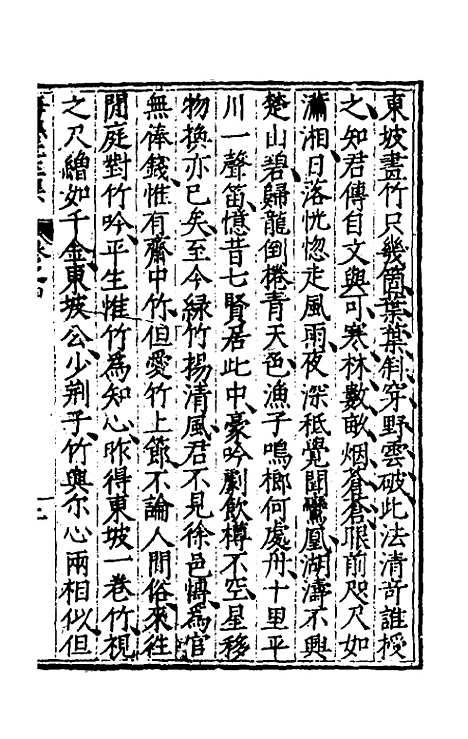 東坡畫竹只幾箇葉葉制穿野雲破此法清奇誰授
之知君傳自文與可寒林數畝烟蒼蒼眼前咫尺如
瀟湘日落恍惚走風雨夜深秪覺聞鸞鳳湖濤不興
楚山碧歸龍倒捲青天色漁子鳴榔何處舟十里平
川一聲笛憶昔七賢居此中豪吟劇飲樽不空星移
物換亦已矣至今緑竹楊清風君不見徐邑博為官
無俸錢惟有齋中竹但愛竹上節不論人間俗來往
閒庭對竹吟平生惟竹為知心昨得東坡一卷竹視
之尺繒如千金東坡公少荆子竹與尓心兩相似但
卷之四